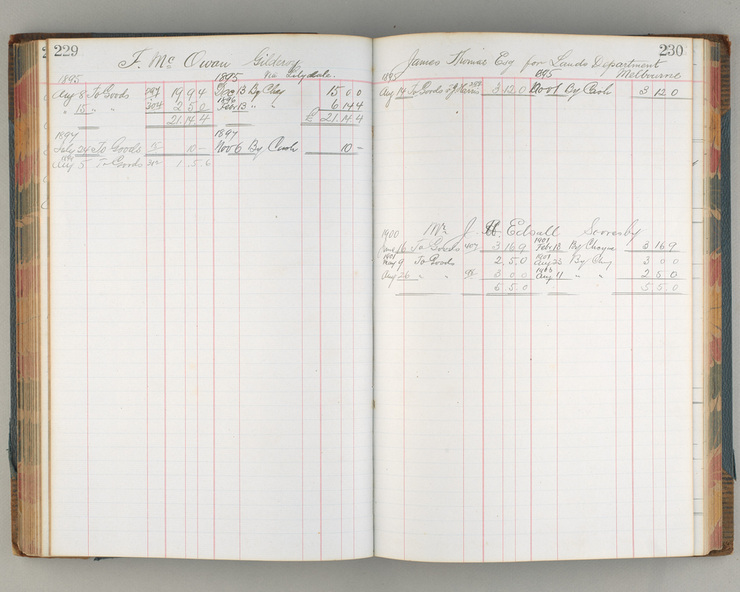 229
F. Mc Owan Gilderoy
Via Lilydale.
1895 1895
Aug 8 To Goods 19 9 4 Dec 13 By Chq 15 0 0
" 15 " " 304 2 5 0 1896 Feb 13 " " 6 14 4
21 14 4 £ 21 14 4
1897 1897
July 24 To Goods 10 - Nov 6 By Cash 10 -
Aug 5 To Goods 1 5 6
230
James Thomas Esq for Lands Department
Melbourne
1895 1895
Aug 14 To Goods 3 12 0 Nov 1 By Cash 3 12 0
Mr J. Edwall
1900 1901
June 16 To Goods 407 3 16 9 Feb 12 By Cheque 3 16 9
1901
May 9 To Goods 2 5 0 Aug 23 By Chq 3 0 0
Aug 26 " " 98 3 0 0 1903 Aug 11 " " 2 5 0
5 5 0 5 5 0